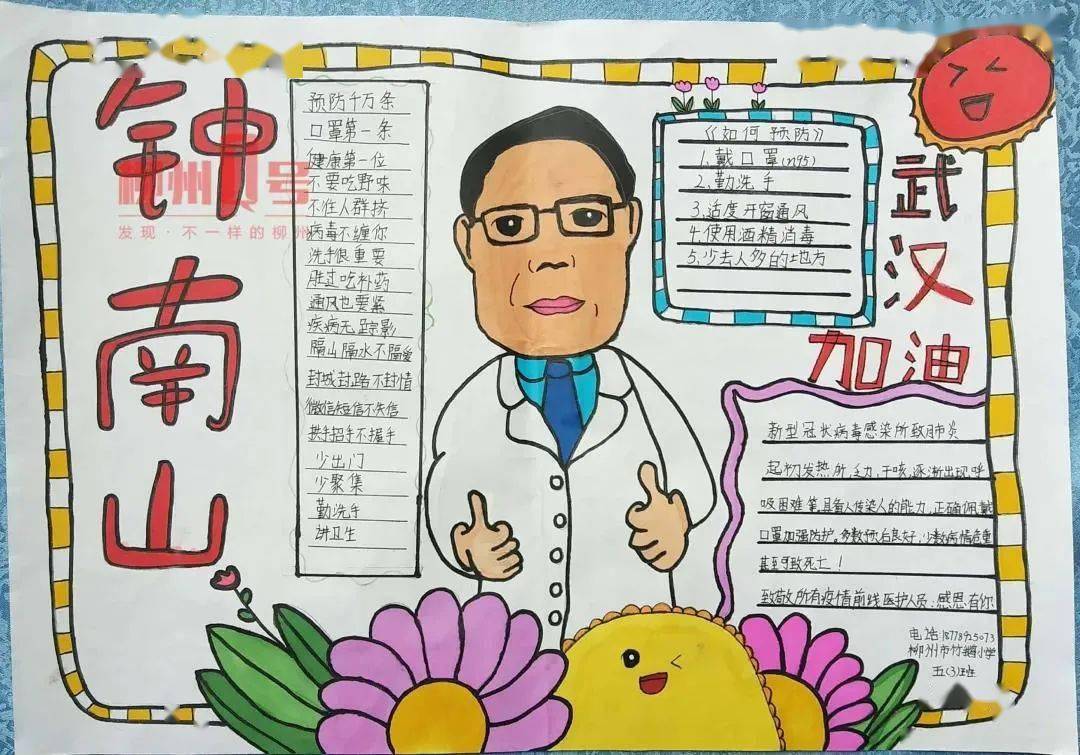 钟南山
柳州1号
发现·不一样的柳州
预防千万条
口罩第一条
健康第一位
不要吃野味
不往人群挤
病毒不缠你
洗手很重要
胜过吃补药
通风也要紧
疾病无踪影
隔山隔水不隔爱
封城封路不封情
微信短信不失信
拱手招手不握手
少出门
少聚集
勤洗手
讲卫生
《如何预防》
1.戴口罩(n95)
2.勤洗手
3.适度开窗通风
4.使用酒精消毒
5.少去人多的地方
武汉
加油
新型冠状病毒感染所致肺炎
起初发热、乏力、干咳、逐渐出现呼
吸困难等,具备人传人的能力,正确佩戴
口罩加强防护,多数预后良好,少数病情危重
甚至可致死亡!
致敬所有疫情前线医护人员,感恩有你
电话:18778925073
柳州市竹鹅小学
五(3)班